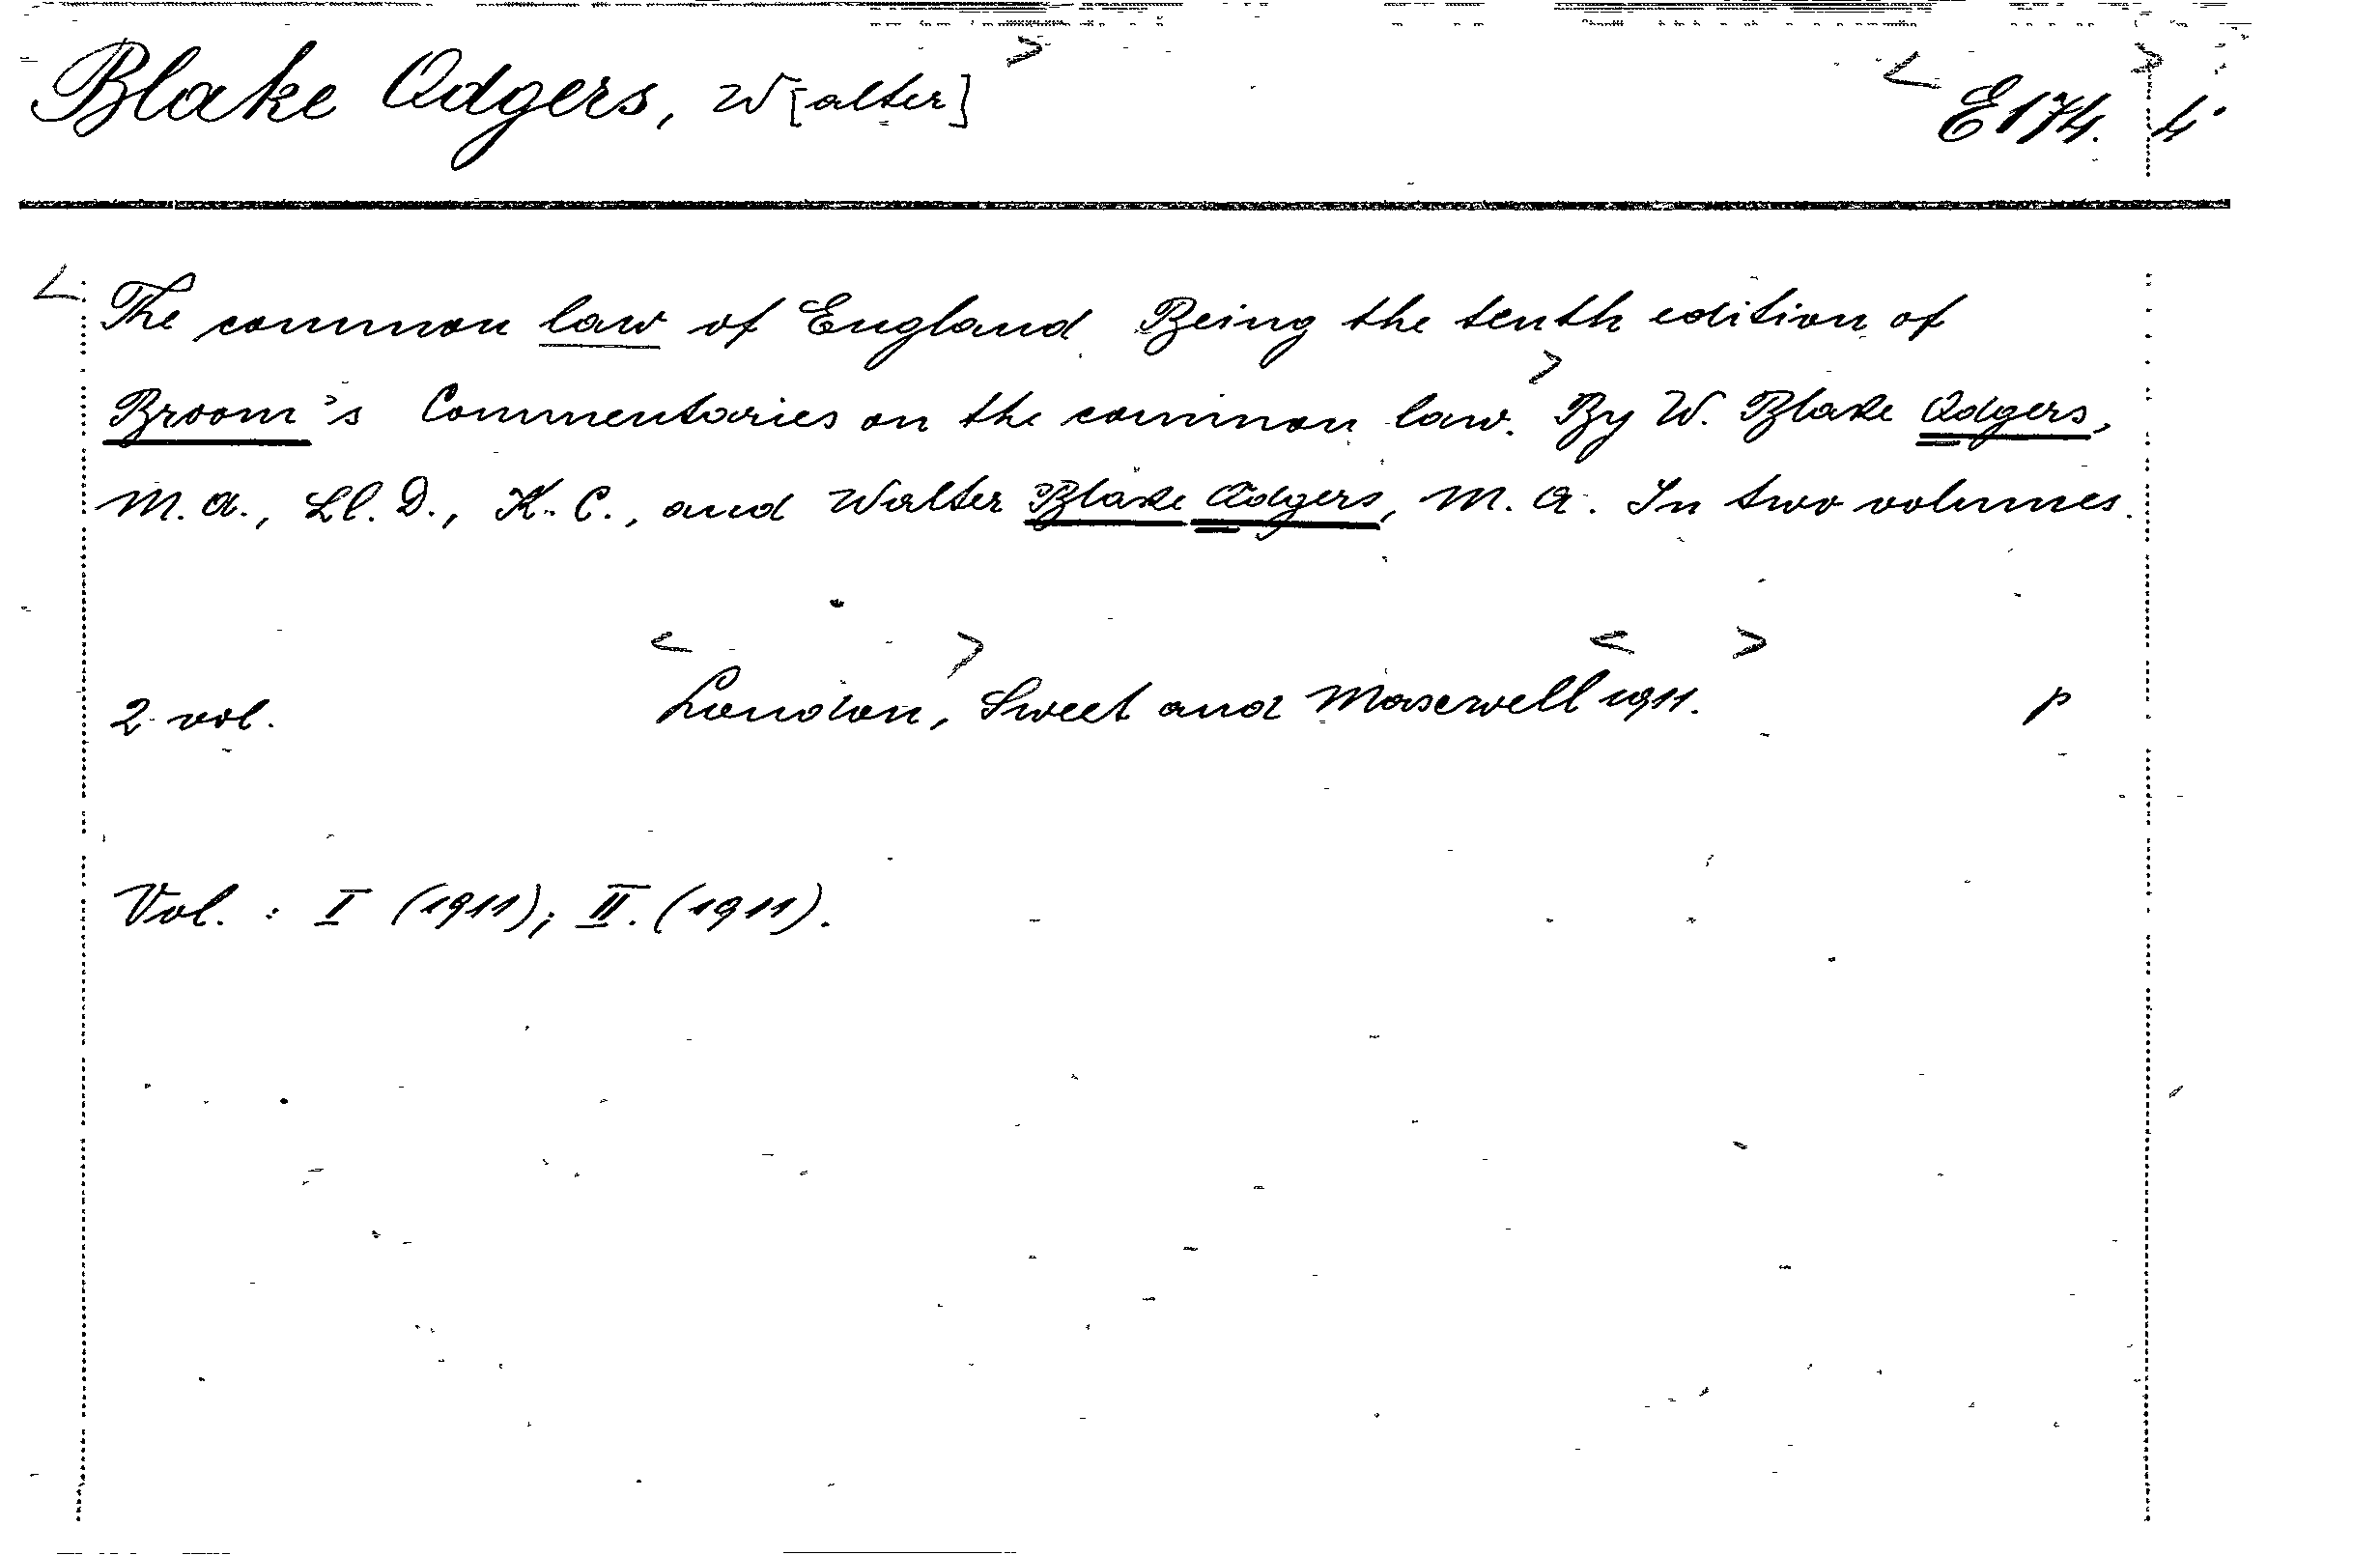 Blake Odgers, W[alter] E174. 4°
The common law of England. Being the tenth edition of
Broom's Commentaries on the common law. By W. Blake Odgers,
M. A., Ll. D., K. C., and Walter Blake Odgers, M. A. In two volumes.
2 vol. London, Sweet and Maxwell 1911. p
Vol. : I (1911); II. (1911).